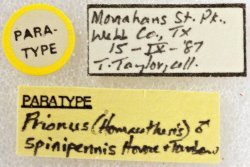 PARA-
TYPE
Monahans St. Pk.,
Webb Co., TX
15-IX-'87
T. Taylor, coll.
PARATYPE
Prionus (Homaesthesis) ♂
spinipennis Hovore & Turnbow